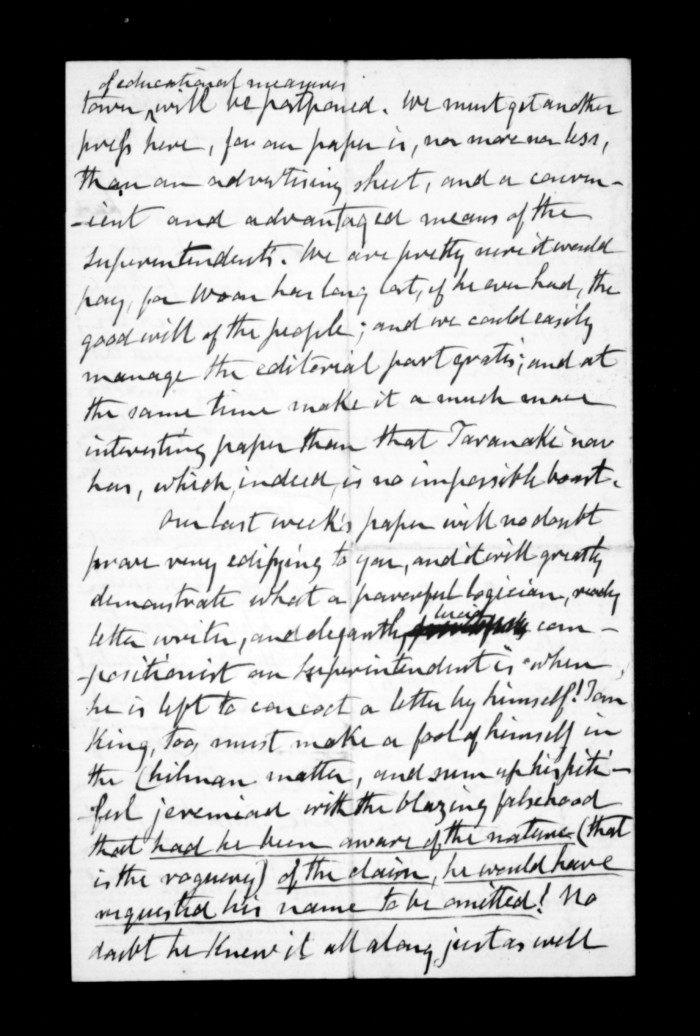 of educational measures
town, will be postponed. We must get another
press here, for our paper is, nor more nor less,
than an advertising sheet, and a conven-
-ient and advantaged means of the
Superintendents. We are pretty sure it would
pay, for Woon has long lost, if he ever had, the
good will of the people; and we could easily
manage the editorial part gratis; and at
the same time make it a much more
interesting paper than that Taranaki now
has, which, indeed, is no impossible boast.
Our last week's paper will no doubt
prove very edifying to you, and it will greatly
demonstrate what a powerful logician, ready
letter writer, and elegantly lucid com-
-positionist our Superintendent is when
he is left to concoct a letter by himself! Tom
King, too, must make a fool of himself in
the Chilman matter, and sum up his piti-
-ful jeremiad with the blazing falsehood
that had he been aware of the nature (that
is the roguery) of the claim, he would have
requested his name to be omitted! No
doubt he knew it all along just as well